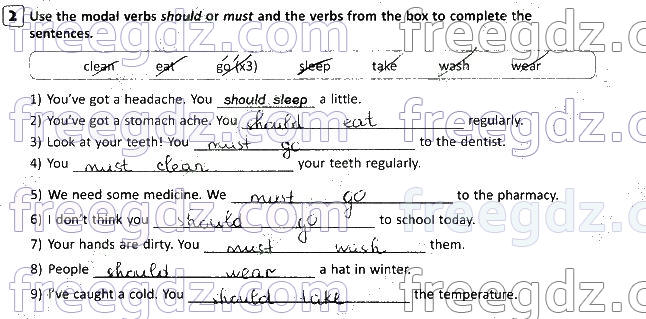 2 Use the modal verbs should or must and the verbs from the box to complete the
sentences.
clean eat go (x3) sleep take wash wear
1) You've got a headache. You should sleep a little.
2) You've got a stomach ache. You should eat regularly.
3) Look at your teeth! You must go to the dentist.
4) You must clean your teeth regularly.
5) We need some medicine. We must go to the pharmacy.
6) I don't think you should go to school today.
7) Your hands are dirty. You must wash them.
8) People should wear a hat in winter.
9) I've caught a cold. You should take the temperature.
freegdz.com freegdz.com
freegdz.com freegdz.com
freegdz.com freegdz.com
freegdz.com freegdz.com